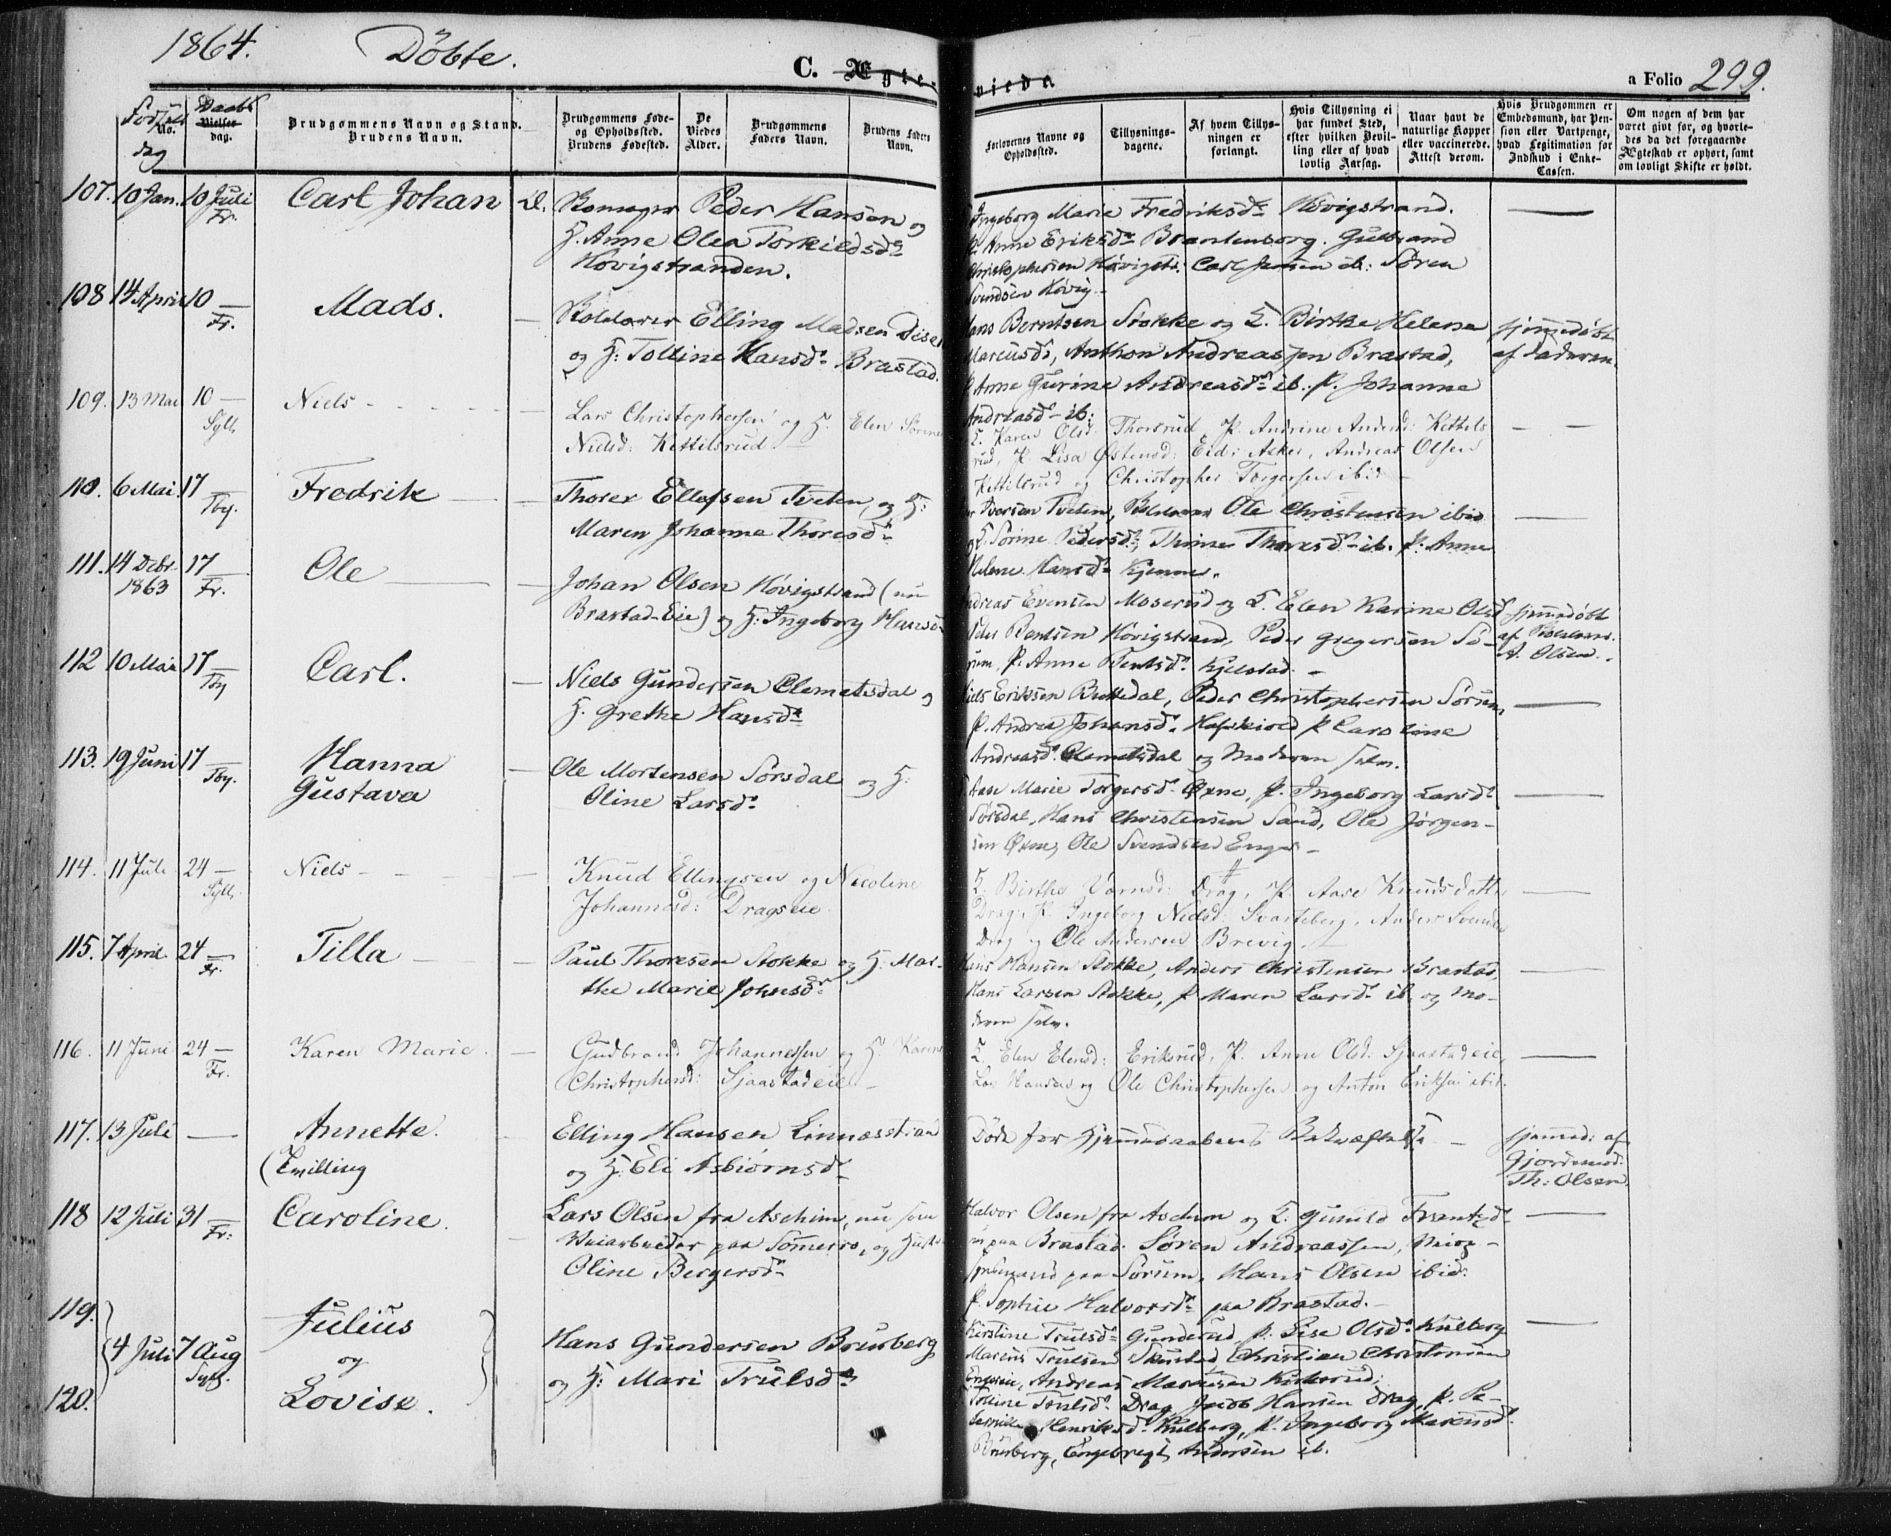 1864. Döbte. C. Ægteviede a Folio 299.
Fødsels No. dag
Daabs Vielses dag.
Brudgommens Navn og Stand. Brudens Navn.
Brudgommens Føde- og Opholdssted. Brudens Fødested.
De Viedes Alder.
Brudgommens Faders Navn.
Brudens Faders Navn.
Forlovernes Navne og Opholdssted.
Tillysnings-dagene.
Af hvem Tillysningen er forlangt.
Hvis Tillysning ei har fundet Sted, efter hvilken Bevilling eller af hvad lovlig Aarsag.
Naar havt de naturlige Kopper eller vaccinerede. Attest derom.
Hvis Brudgommen er Embedsmand, har Pension eller Vartpenge, hvad Legitimation for Indskud i Enke-Cassen.
Om nogen af dem har været gift før, og hvorledes da det foregaaende Ægteskab er ophørt, samt om lovligt Skifte er holdt.
107. 10 Jan. 10 Juli Fr. Carl Johan Peder Hansen og
H. Anne Olea Torkildsdr
Høvigstranden.
Ingeborg Marie Fredriksdr Høvigstrand.
P. Anne Eriksdr Brantenborg. Gulbrand
Christophersen Høvigstr: Carl Jensen ib: Søren
Svendsen Høvig. —
108 14 April 10 — Fr. Mads. — Elling Madsen
og H: Tolline Hansdr Brastad.
Hans Berntsen Stokke og E. Birthe Helene hjemmedøbt
Marcusdr, Anthon Andreassen Brastad, af Faderen.
P. Anne Gurine Andreasdr ib. P. Johanne
Andreasdr ib:
109. 13 Mai 10 — Syll. Niels — Lars Christophersen og H. Elen Sørine
Nielsd: Kettilsrud
E. Karen Olsd: Thorsrud, P. Andrine Andersd: Kettels- — —
rud, P. Lisa Østensd: Eid i Asker, Andreas Olsen
Kettilsrud og Christopher Torgersen ibid —
110. 6 Mai 17 — Tby. Fredrik — Thorer Ellefsen Tveten, og H:
Maren Johanne Thoresdr
Iversen Tveten, Ole Christensen ibid —
E. Sørine Pedersdr, Thrine Thoresdr ib. P. Anne
Helene Hansdr Hjemme.
111. 14 Debr 17 — Ole — Johan Olsen Høvigstrand (nu
1863 Fr. Brastad-Eie) og H: Ingeborg Hansdr
Andreas Evensen Moserud og E. Elen Karine Olsdr hjemmedøbt
Peder Bentsen Høvigstrand, Peder Gregersen Sö- af
rum, P. Anne Bentsdr Kjelstad. — A. Olsen.
112 10 Mai 17 — Tby Carl. — Niels Gundersen Clemetsdal og
H. Grethe Hansdr
Niels Eriksen Buttedal, Peder Christophersen Sørum, —
P. Andrea Johansdr P. Caroline
Andreasdr Clemetsdal og Moderen selv.
113. 19 Juni 17 — Tby. Hanna — Ole Mortensen Sørsdal og H:
Gustava Oline Larsdr
Aase Marie Torgersdr Øxne, P. Ingeborg Larsdr —
Sørsdal, Hans Christensen Sand, Ole Jørgen-
sen Øxne, Ole Svendsen Enger —
114. 11 Juli 24 — Syll. Niels — Knud Ellingsen og Nicoline
Johannesd: Dragseie
E. Birthe Drag, P. Aase Knudsdatter —
Drag, P. Ingeborg Nielsd: Svarteberg, Anders Svendsen
Drag og Ole Andersen Brevig.
115. 7 April 24 — Fr. Tilla — Paul Thoresen Stokke og H: Mar-
the Marie Johnsdr
Hans Hansen Stokke, Anders Christensen Brastad, —
Hans Larsen Stokke, P. Maren Larsdr ib og Mo-
deren selv.
116. 11 Juni 24 — Fr. Karen Marie. — Gudbrand Johannessen og H Karen
Christophersd: Sjaastadeie —
E. Elen Elensd: Eriksrud, P. Anne Olsd: Sjaastadeie, —
Hansen og Ole Christophersen og Anton Eriksen ibid.
117. 13 Juli — Annette. — Elling Hansen Linnæsstran
(Tvilling og H. Eli Asbiørnsdr
Døde før Hjemmedaabens Bekræftelse — hjemmed: af
Gjordemod.
Th: Olsen.
118 12 Juli 31 — Fr: Caroline. — Lars Olsen fra Aschim, nu som
Veiarbeider paa Sømerro, og Hustr
Oline Bergersdr
Halvor Olsen fra Aschim og E. Gunild —
nu paa Brastad. Søren Andreassen,
paa Sørum, Hans Olsen ibid:
P. Sophie Halvorsdr paa Brastad. —
119. Julius
4 Juli 7 Aug Syll. og Hans Gundersen Brusberg
120. Lovise. og H: Mari Trulsdr
Kirstine Trulsdr Gunderud, P. Lise Olsdr Kulberg —
Marcus Trulsen Skustad, Christian Christensen
Engereie, Andreas
Tolline Trulsdr Drag, Jacob Hansen Drag, P. Pe-
Henriksdr Kulberg, P. Ingeborg Marcusdr
Brusberg, Engebregt Andersen ib.